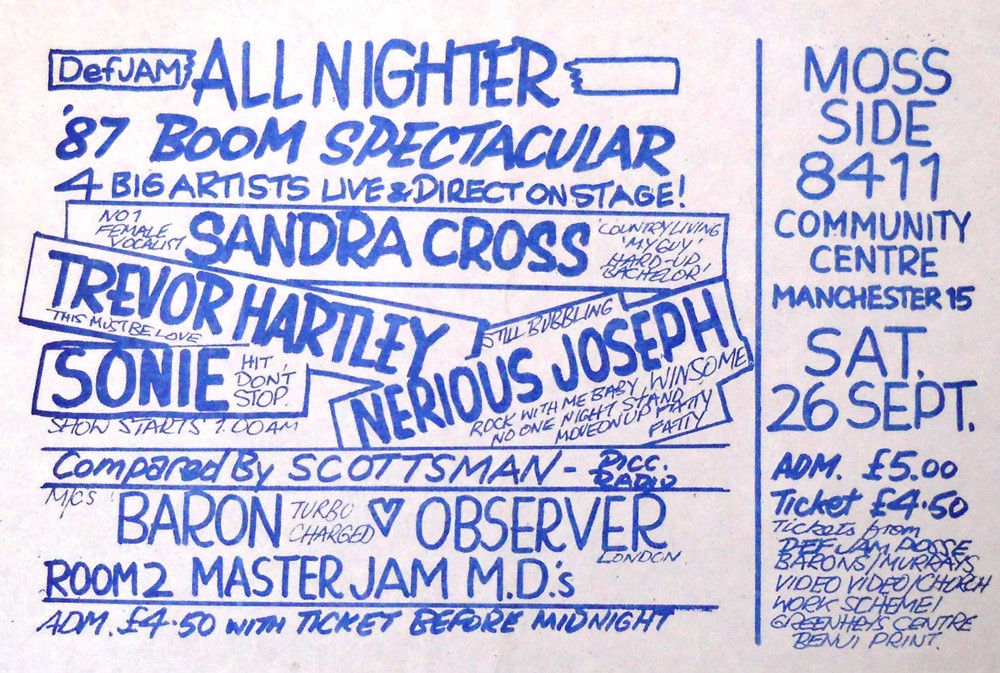 DefJAM ALL NIGHTER
'87 BOOM SPECTACULAR
4 BIG ARTISTS LIVE & DIRECT ON STAGE!
NO 1
FEMALE
VOCALIST
SANDRA CROSS
'COUNTRY LIVING
'MY GUY'
HARD-UP
BACHELOR'
TREVOR HARTLEY
THIS MUST BE LOVE
SONIE
HIT
DON'T
STOP.
STILL BUBBLING
NERIOUS JOSEPH
ROCK WITH ME BABY, WINSOME
NO ONE NIGHT STAND
MOVE ON UP FATTY
FATTY
SHOW STARTS 1.00AM
Compared By SCOTTSMAN - PICC.
RADIO
M/C'S BARON TURBO
CHARGED ♡ OBSERVER
LONDON
ROOM 2 MASTER JAM M.D.'s
ADM. £4·50 WITH TICKET BEFORE MIDNIGHT
MOSS
SIDE
8411
COMMUNITY
CENTRE
MANCHESTER 15
SAT.
26 SEPT.
ADM. £5.00
Ticket £4·50
Tickets from
DEF JAM POSSE
BARONS/MURRAYS
VIDEO VIDEO/CHURCH
WORK SCHEME/
GREENHEYS CENTRE
BENJI PRINT.